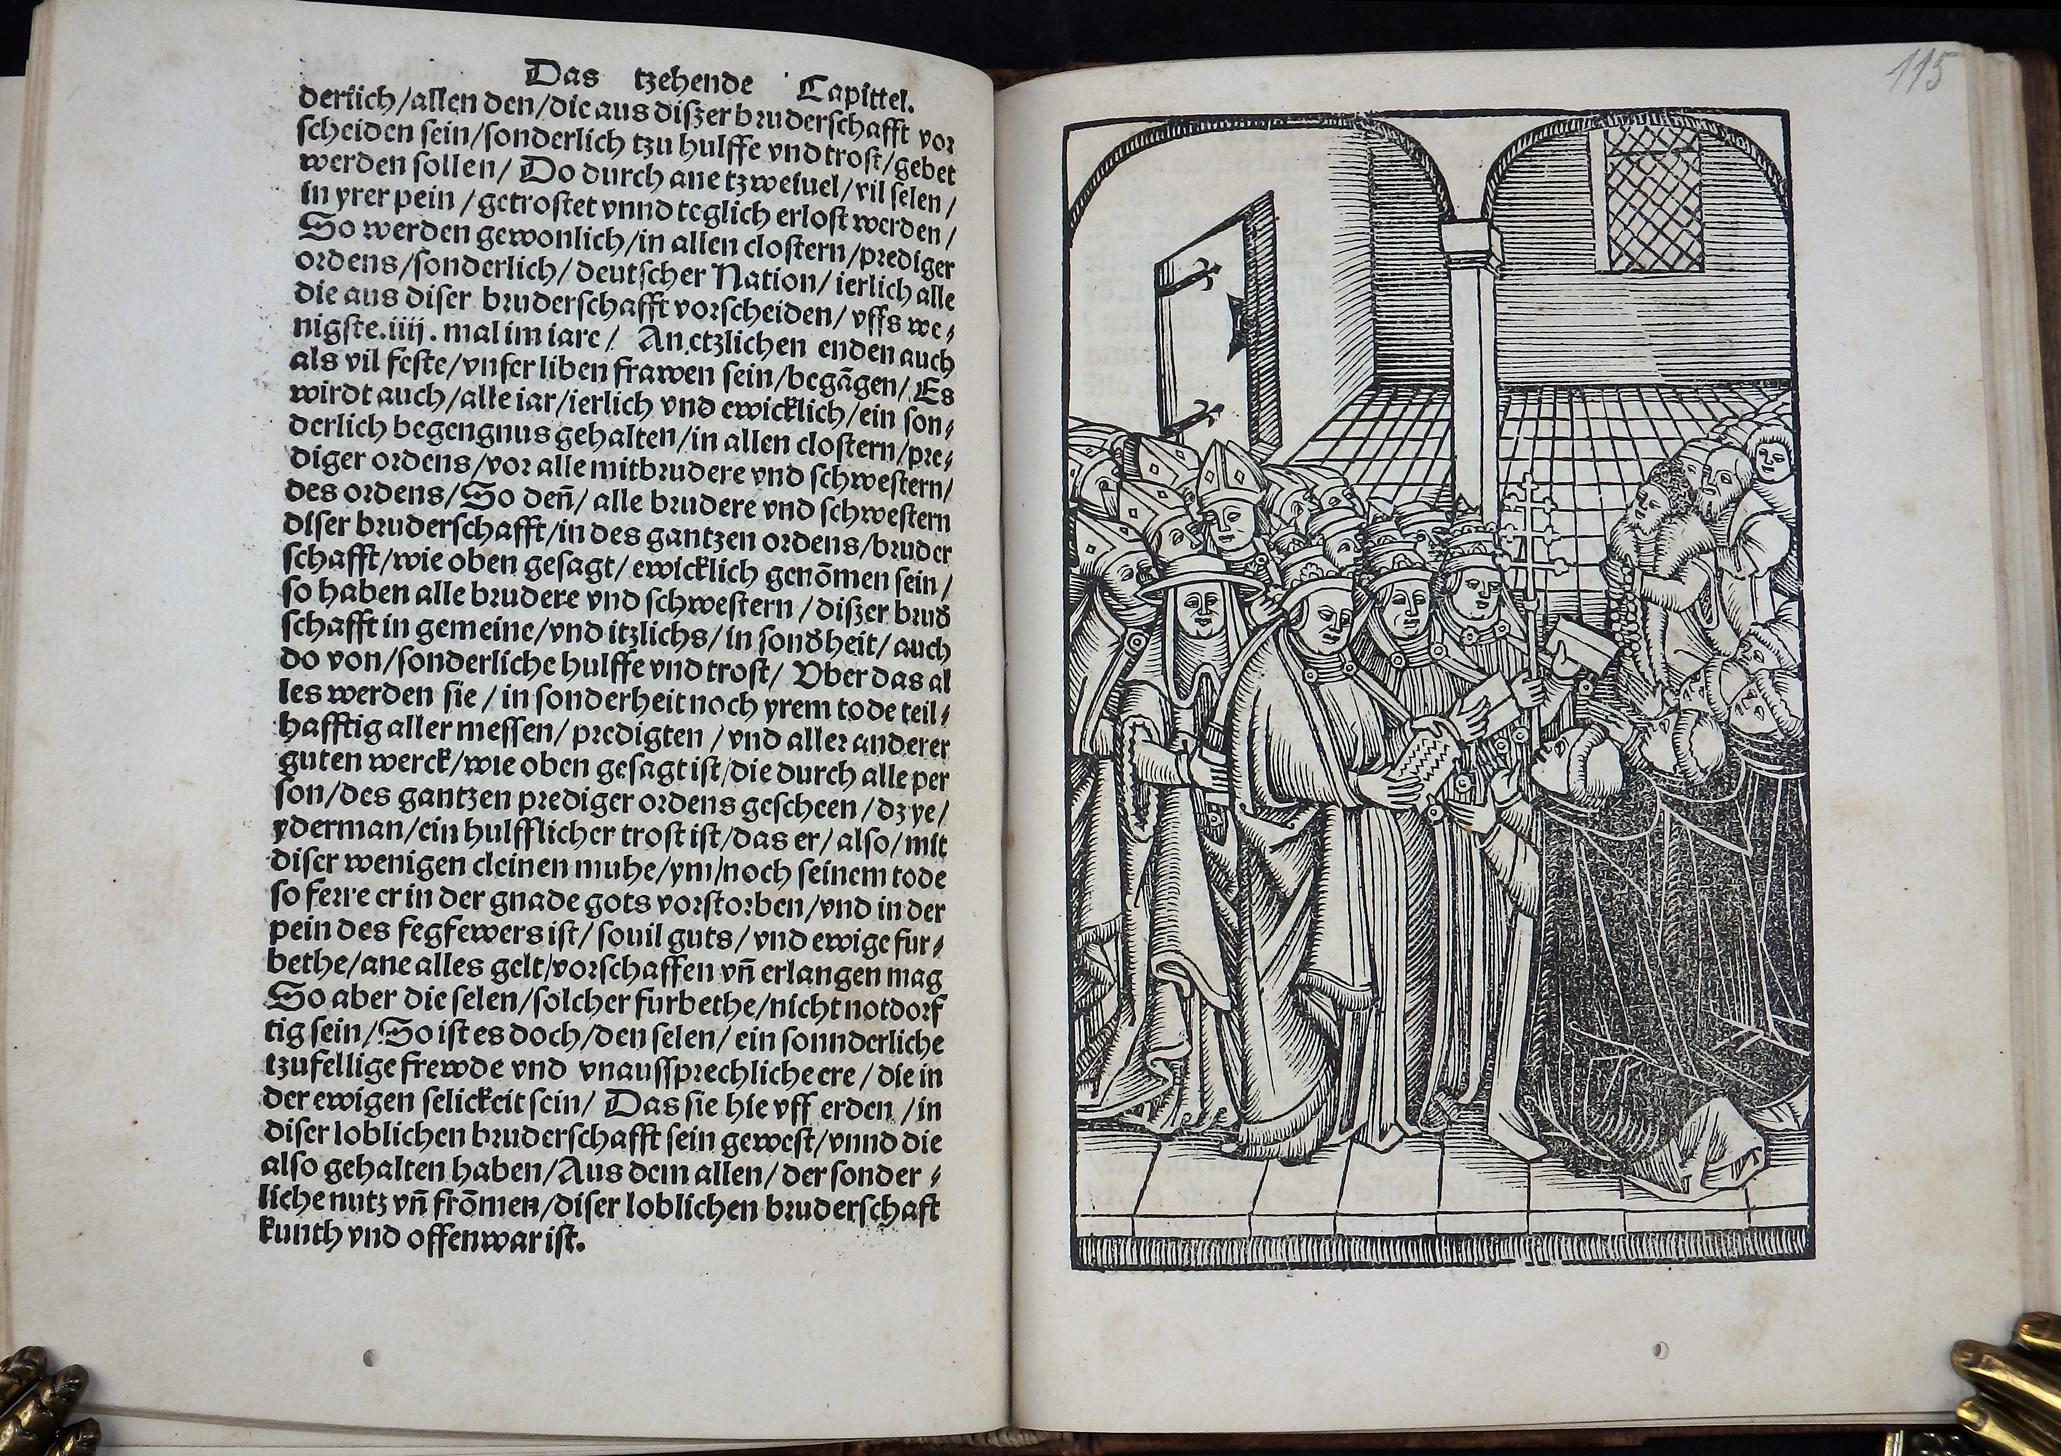 Das tzehende Capittel.
derlich/allen den/die aus diszer bruderschafft vor
scheiden sein/sonderlich tzu hulffe vnd trost/gebet
werden sollen/ Do durch ane tzweiuel/vil selen/
in yrer pein/getrostet vnnd teglich erlost werden/
So werden gewonlich/in allen clostern/prediger
ordens/sonderlich/deutscher Nation/ierlich alle
die aus diser bruderschafft vorscheiden/vffs we⸗
nigste.iiij.mal im iare/ An etzlichen enden auch
als vil feste/vnser liben frawen sein/begāgen/Es
wirdt auch/alle iar/ierlich vnd ewicklich/ein son⸗
derlich begengnus gehalten/in allen clostern/pre⸗
diger ordens/vor alle mitbrudere vnd schwestern/
des ordens/So deñ/alle brudere vnd schwestern
diser bruderschafft/in des gantzen ordens/bruder
schafft/wie oben gesagt/ewicklich genōmen sein/
so haben alle brudere vnd schwestern/diszer brud̄
schafft in gemeine/vnd itzlichs/in sond̄heit/auch
do von/sonderliche hulffe vnd trost/ Vber das al
les werden sie/in sonderheit noch yrem tode teil⸗
hafftig aller messen/predigten/vnd aller anderer
guten werck/wie oben gesagt ist/die durch alle per
son/des gantzen prediger ordens gescheen/dz ye/
yderman/ein hulfflicher trost ist/das er/also/mit
diser wenigen cleinen muhe/ym/noch seinem tode
so ferre er in der gnade gots vorstorben/vnd in der
pein des fegfewers ist/souil guts/vnd ewige fur⸗
bethe/ane alles gelt/vorschaffen vñ erlangen mag
So aber die selen/solcher furbethe/nicht notdorf
tig sein/So ist es doch/den selen/ein sonnderliche
tzufellige frewde vnd vnaussprechliche ere/die in
der ewigen selickeit sein/ Das sie hie vff erden/in
diser loblichen bruderschafft sein gewest/vnnd die
also gehalten haben/Aus dem allen/der sonder⸗
liche nutz vñ frōmen/diser loblichen bruderschaft
kunth vnd offenwar ist.
115